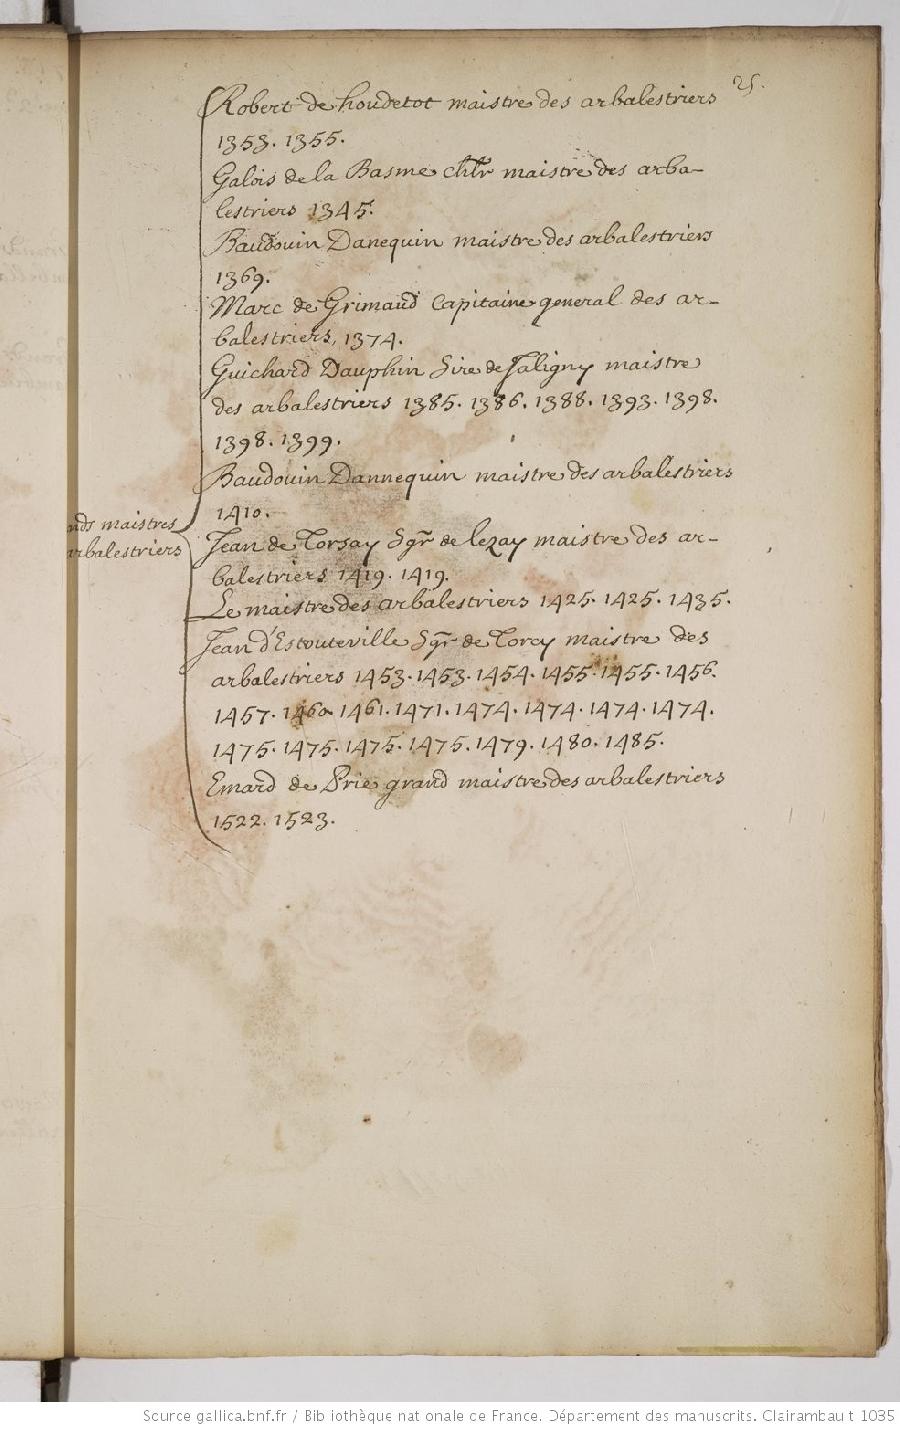 25.
Robert de houdetot maistre des arbalestriers
1353. 1355.
Galois de la Basme chlr maistre des arba-
lestriers 1345.
Baudouin Danequin maistre des arbalestriers
1369.
Marc de Grimaud Capitaine general des ar-
balestriers, 1374.
Guichard Dauphin Sire de Jaligny maistre
des arbalestriers 1385. 1386. 1388. 1393. 1398.
1398. 1399.
Baudouin Dannequin maistre des arbalestriers
1410.
nds maistres
arbalestriers
Jean de Torsay Sgr de lezay maistre des ar-
balestriers 1419. 1419.
Le maistre des arbalestriers 1425. 1425. 1435.
Jean d'Estouteville Sgr de Torcy maistre des
arbalestriers 1453. 1453. 1454. 1455. 1455. 1456.
1457. 1460. 1461. 1471. 1474. 1474. 1474. 1474.
1475. 1475. 1475. 1475. 1479. 1480. 1485.
Emard de Prie grand maistre des arbalestriers
1522. 1523.
Source gallica.bnf.fr / Bibliothèque nationale de France. Département des manuscrits. Clairambault 1035